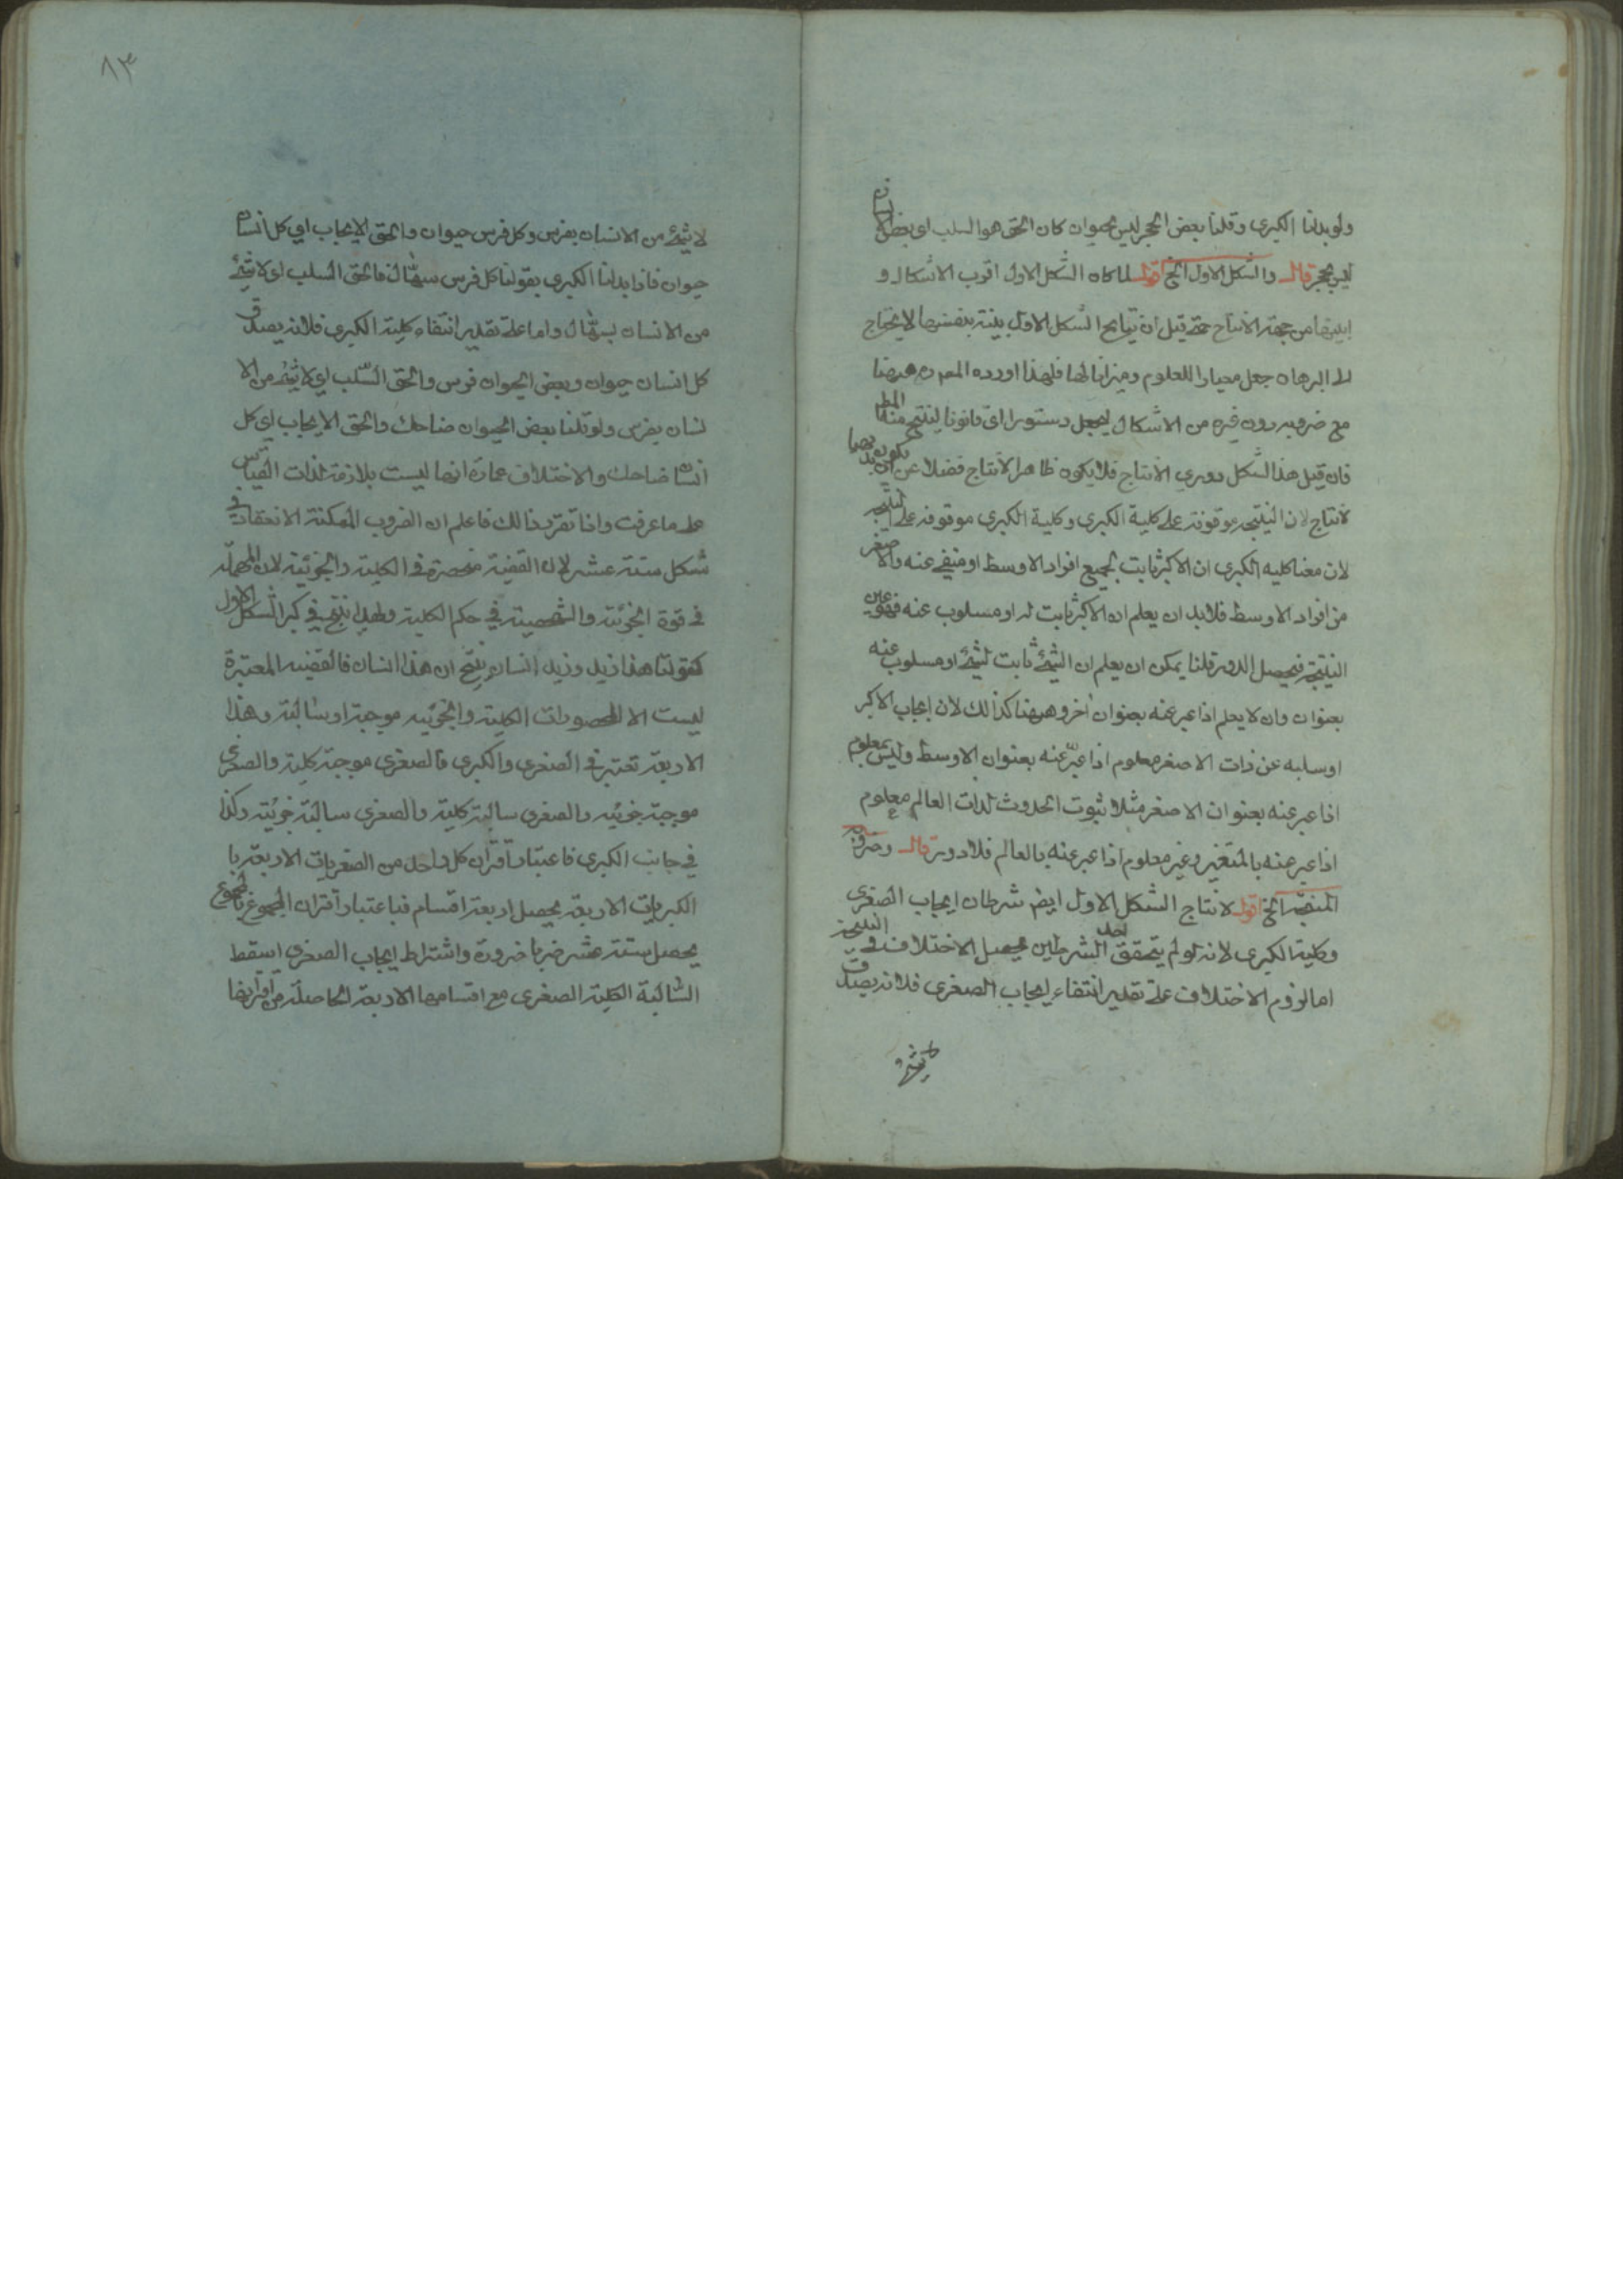 ولو بدلنا الكبرى وقلنا بعض الحجر ليس بحيوان كان الحق هو السلب اى بعض الانسان
ليس بحجر قال والشكل الاول الخ اقول لما كان الشكل الاول اقرب الاشكال و
ابينها من جهة الانتاج حتى قيل ان نتايج الشكل الاول بينة بنفسها لا يحتاج
الى البرهان جعل معيارا للعلوم وميزانا لها فلهذا اورده المص ههنا
مع ضروبه دون غيره من الاشكال ليجعل دستورا اى قانونا لينتج منه المط
فان قيل هذا الشكل دورى الانتاج فلا يكون ظاهر الانتاج فضلا عن ان يكون بديهيا
لانتاج لان النتيجه موقوفة على كلية الكبرى وكلية الكبرى موقوفه على النتيجه
لان معنا كليه الكبرى ان الاكبر ثابت لجميع افراد الاوسط او منفى عنه والاصغر
من افراد الاوسط فلا بد ان يعلم ان الاكبر ثابت له او مسلوب عنه فهو عين
النتيجة فيحصل الدور قلنا يمكن ان يعلم ان الشئ ثابت لشئ او مسلوب عنه
بعنوان وان لا يعلم اذا عبر عنه بعنوان اخر وههنا كذالك لان ايجاب الاكبر
او سلبه عن ذات الاصغر معلوم اذا عبر عنه بعنوان الاوسط وليس بمعلوم
اذا عبر عنه بعنوان الاصغر مثلا ثبوت الحدوث لذات العالم معلوم
اذا عبر عنه بالمتغير وغير معلوم اذا عبر عنه بالعالم فلا دور قال وضروبه
المنتجة الخ اقول لانتاج الشكل الاول ايضا شرطان ايجاب الصغرى
وكلية الكبرى لانه لو لم يتحقق احد الشرطين يحصل الاختلاف فى النتيجة
اما لزوم الاختلاف على تقدير انتفاء ايجاب الصغرى فلانه يصدق
لا شئ
٨٣
لا شئ من الانسان بفرس وكل فرس حيوان والحق الايجاب اى كل انسان
حيوان فاذا بدلنا الكبرى بقولنا كل فرس سهال فالحق السلب اى لا شئ
من الانسان بسهال واما على تقدير انتفاء كلية الكبرى فلانه يصدق
كل انسان حيوان وبعض الحيوان فرس والحق السلب اى لا شئ من الا
نسان بفرس ولو قلنا بعض الحيوان ضاحك والحق الايجاب اى كل
انسان ضاحك والاختلاف عمادة انها ليست بلازمة لذات القياس
على ما عرفت واذا تقرر هنا لك فاعلم ان الضروب الممكنة الانعقاد فى
شكل ستة عشر لان القضية منحصرة فى الكلية والجزئية لان المهملة
فى قوة الجزئية والشخصية فى حكم الكلية ولهذا ينتج فى كبر الشكل الاول
كقولنا هذا زيد وزيد انسان ينتج ان هذا انسان فالقضيه المعتبرة
ليست الا المحصورات الكلية والجزئيه موجبة او سالبة وهذا
الاربعة تعتبر فى الصغرى والكبرى فالصغرى موجبة كلية والصغرى
موجبة جزئيه والصغرى سالبة كلية والصغرى سالبة جزئية وكذا
فى جانب الكبرى فاعتبار اقتران كل واحد من الصغريات الاربعة با
الكبريات الاربعة يحصل اربعة اقسام فباعتبار اقتران المجموع بالمجموع
يحصل ستة عشر ضربا ضرورة واشتراط ايجاب الصغرى اسقط
السالبة الكلية الصغرى مع اقسامها الاربعة الحاصلة من اقترانها